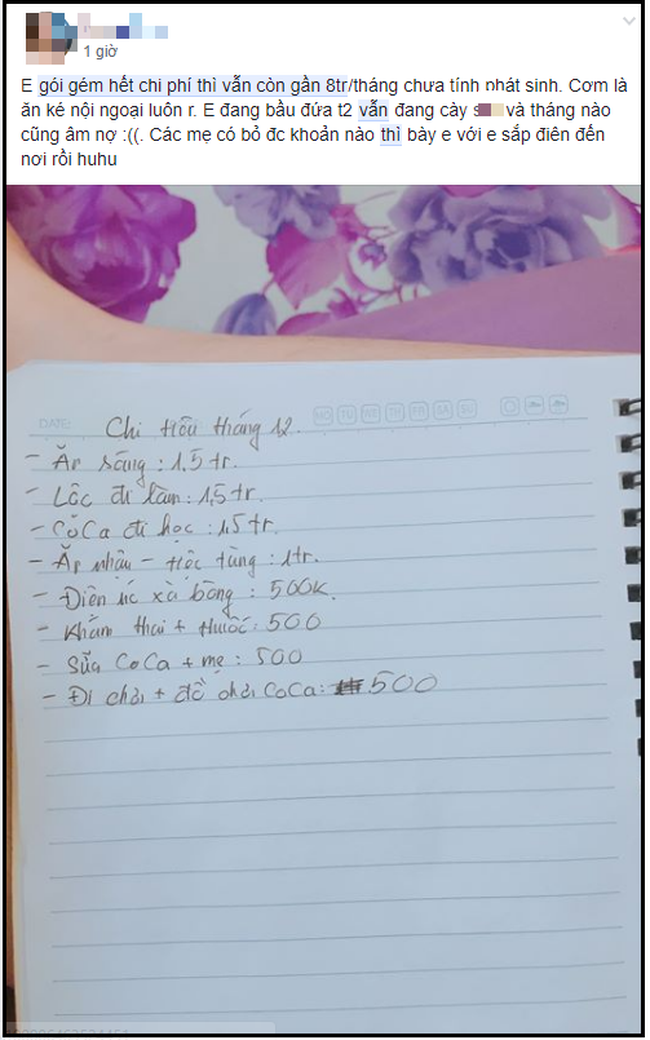 1 giờ
E gói gém hết chi phí thì vẫn còn gần 8tr/tháng chưa tính phát sinh. Cơm là
ăn ké nội ngoại luôn r. E đang bầu đứa t2 vẫn đang cày và tháng nào
cũng âm nợ :((. Các mẹ có bỏ đc khoản nào thì bày e với e sắp điên đến
nơi rồi huhu
DATE: MO TU WE TH FR SA SU
Chi tiêu tháng 12.
- Ăn sáng : 1,5 tr.
- Lộc đi làm : 1,5 tr.
- CôCa đi học : 1,5 tr.
- Ăn nhậu - tiệc tùng : 1tr.
- Điện nc xà bông : 500K.
- Khám thai + thuốc : 500
- Sữa CoCa + mẹ : 500
- Đi chơi + đồ chơi CoCa : 500